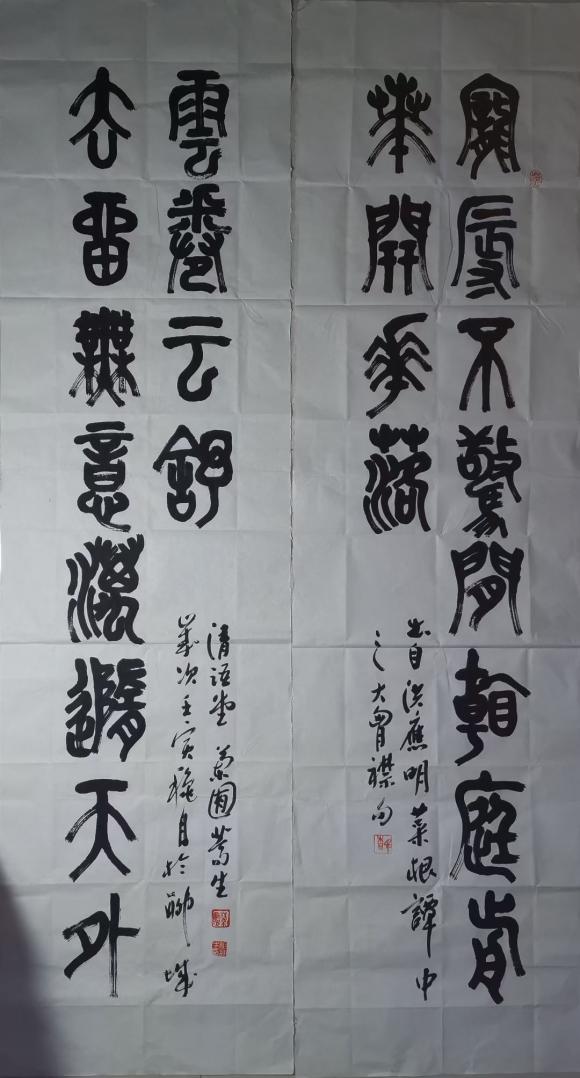 寵辱不驚閒看庭前
華開華落
出自洪應明菜根譚中
之大胸襟句
去留無意漫隨天外
雲卷云舒
歲次壬寅穐月於聊城
清語堂 蘭圃 生